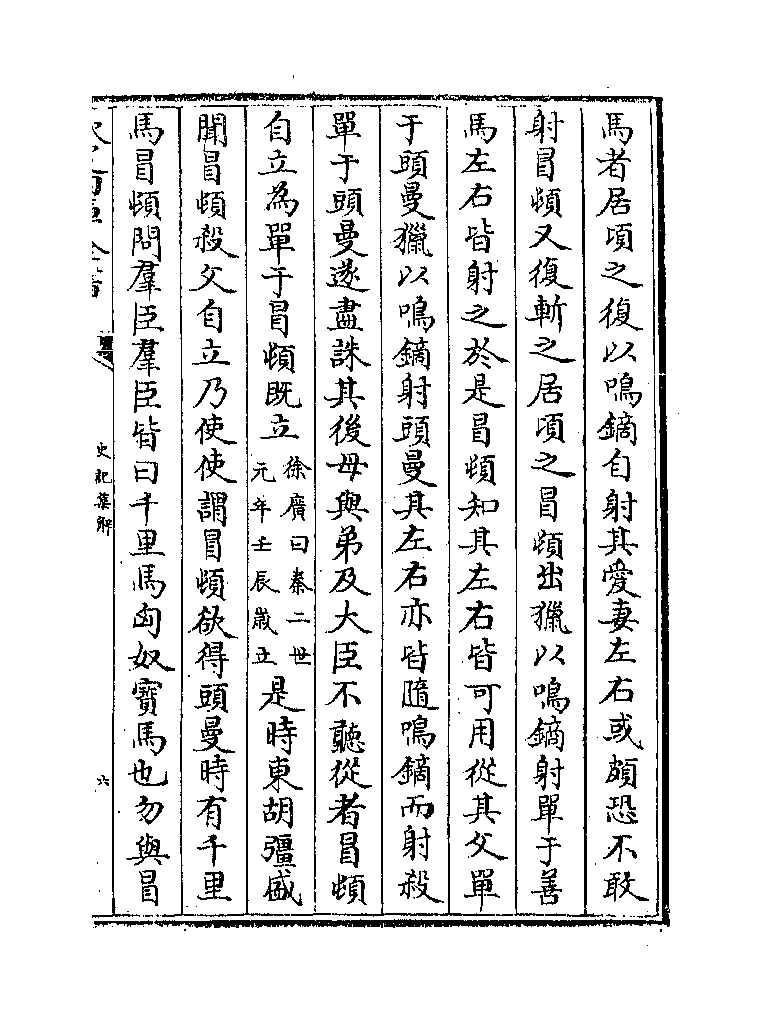 馬者居頃之復以鳴鏑自射其愛妻左右或頗恐不敢
射冒頓又復斬之居頃之冒頓出獵以鳴鏑射單于善
馬左右皆射之於是冒頓知其左右皆可用從其父單
于頭曼獵以鳴鏑射頭曼其左右亦皆隨鳴鏑而射殺
單于頭曼遂盡誅其後母與弟及大臣不聽從者冒頓
自立為單于冒頓既立
徐廣曰秦二世
元年壬辰歲立
是時東胡彊盛
聞冒頓殺父自立乃使使謂冒頓欲得頭曼時有千里
馬冒頓問羣臣羣臣皆曰千里馬匈奴寶馬也勿與冒
史記集解
六